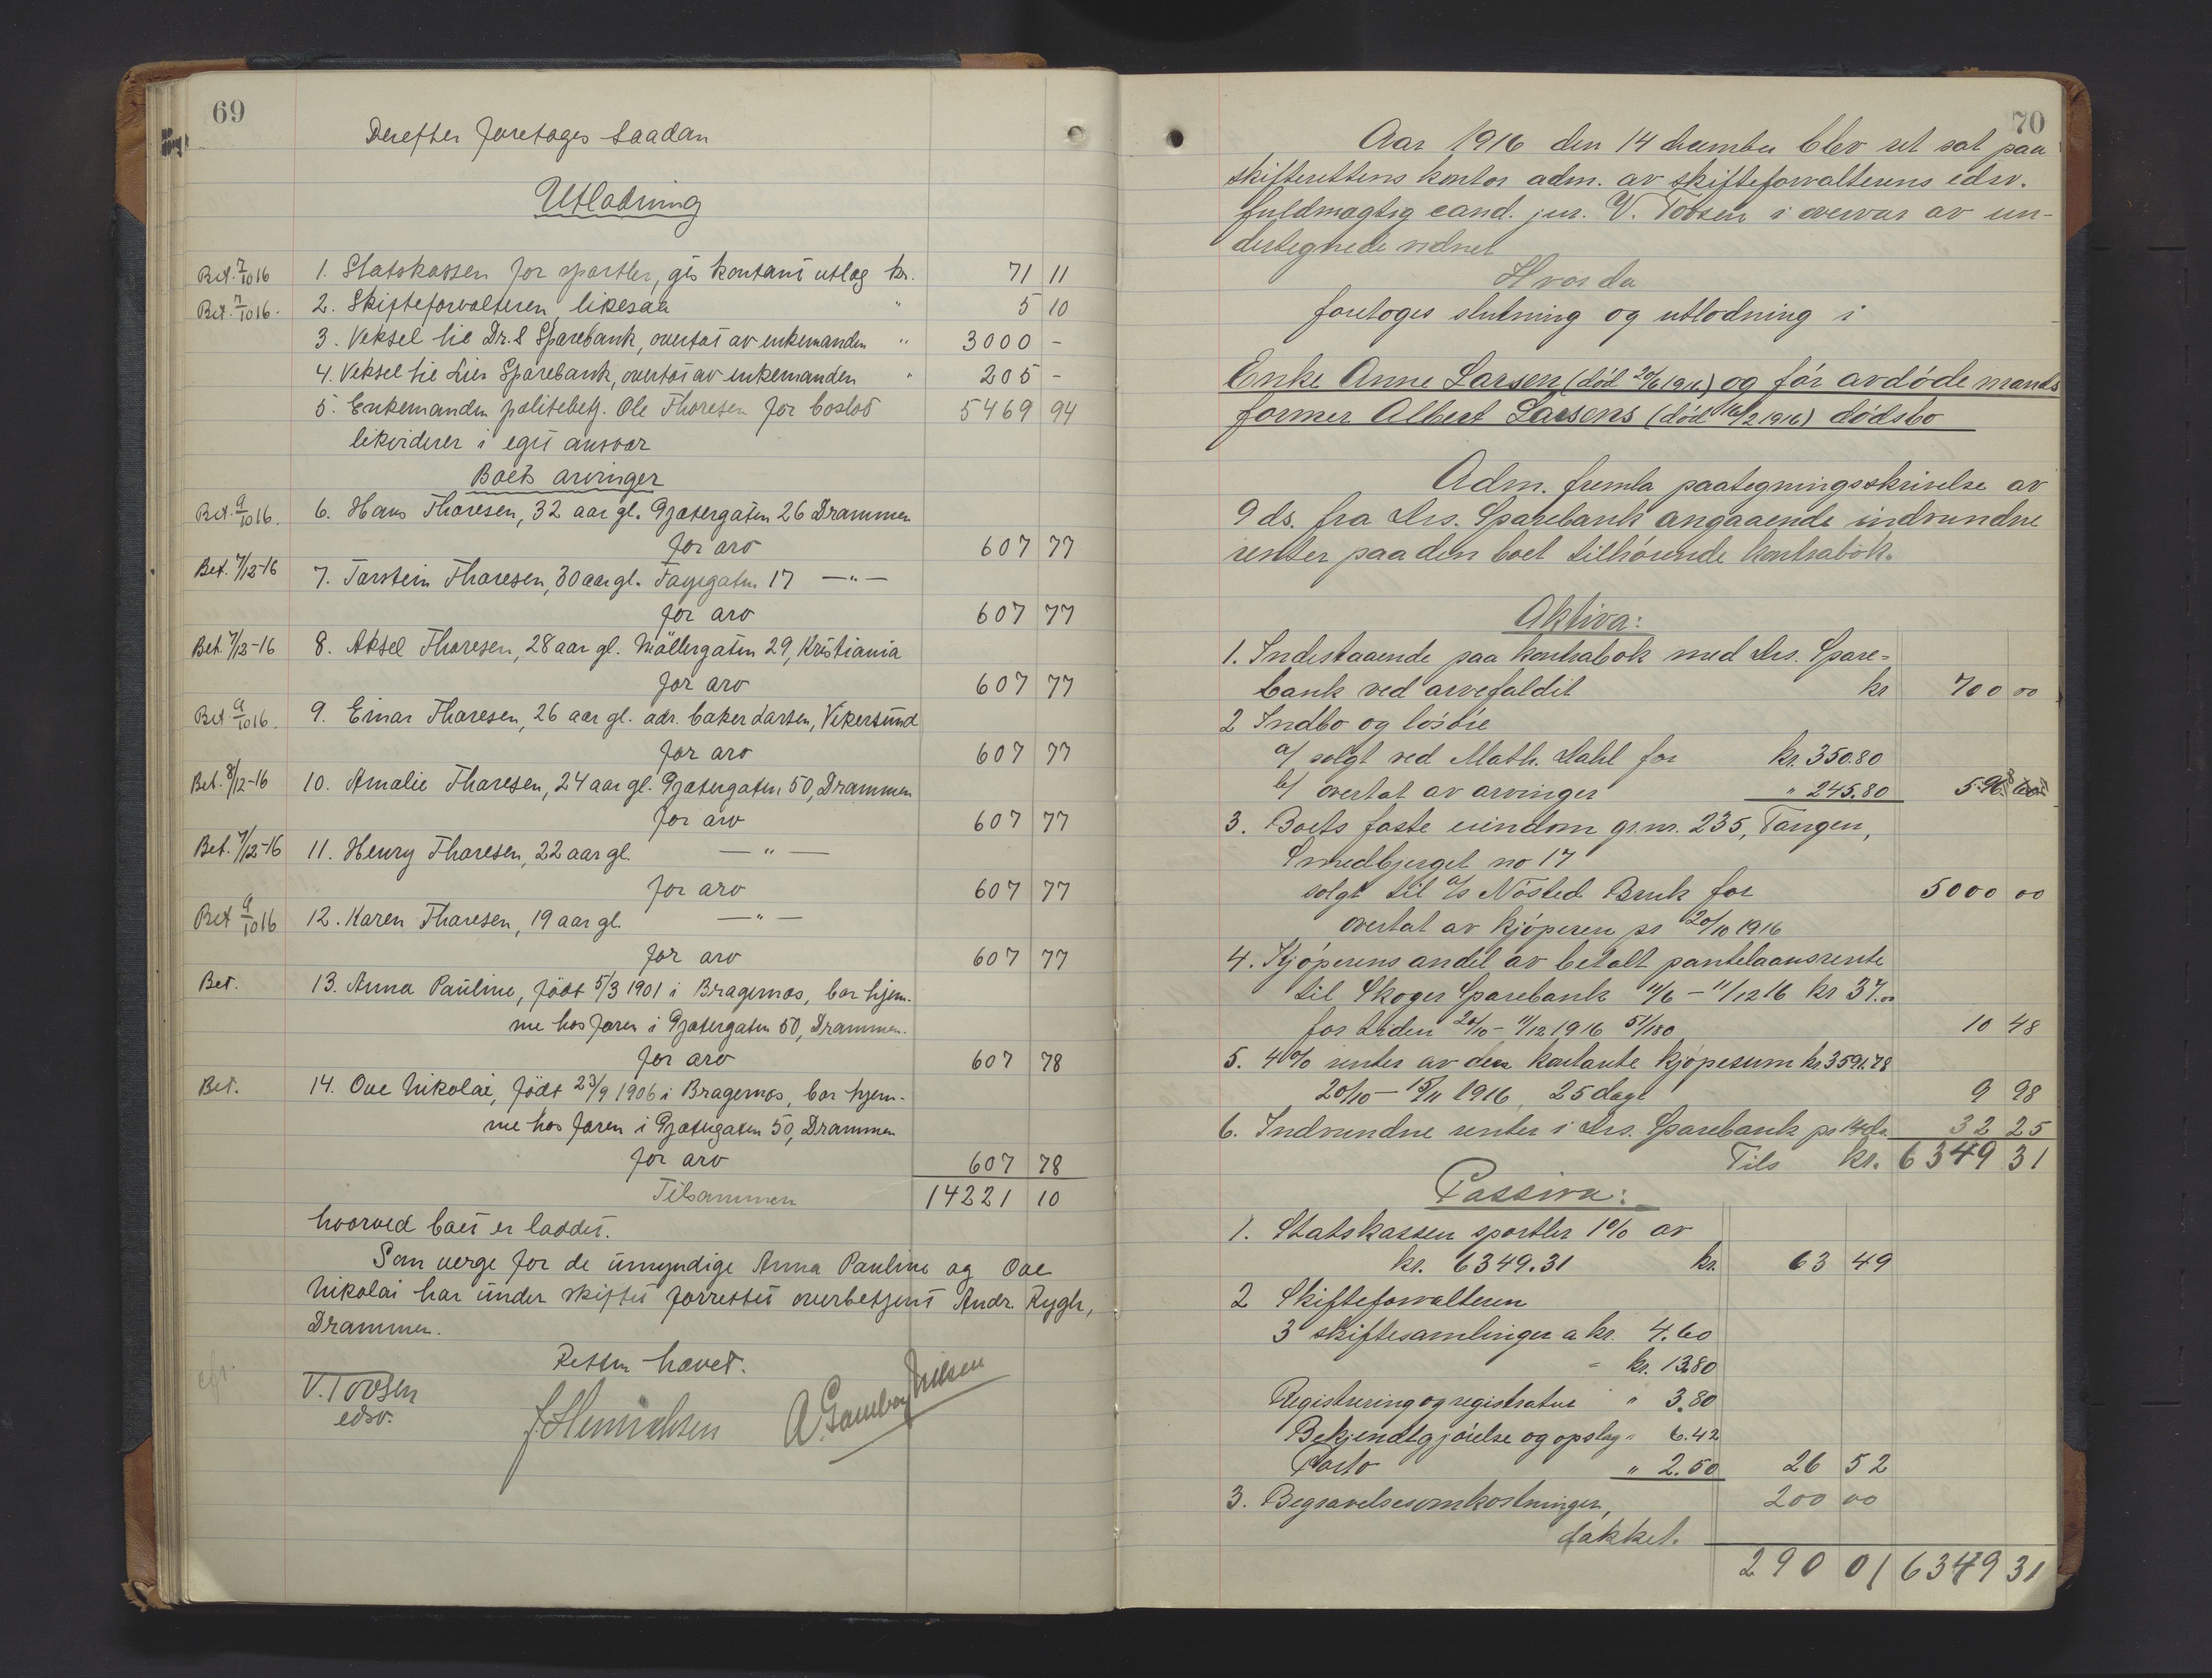 69
Derefter foretoges saadan
Utlodning
Bet. 7/10 16 1. Statskassen for sportler, gis kontant utlæg kr. 71 11
Bet. 7/10 16. 2. Skifteforvalteren, likesaa " 5 10
3. Veksel tie Dr.s Sparebank, overtat av enkemanden " 3000 -
4. Veksel tie Lier Sparebank, overtat av enkemanden " 205 -
5. Enkemanden politibetj. Ole Thoresen for boslod 5469 94
likviderer i eget ansvar
Boets arvinger
Bet. 9/10 16. 6. Hans Thoresen, 32 aar gl. Gjætergaten 26 Drammen
for arv 607 77
Bet. 7/12-16 7. Torstein Thoresen, 30 aar gl. Fayegaten 17 —"—
for arv 607 77
Bet. 7/12-16 8. Aksel Thoresen, 28 aar gl. Möllergaten 29, Kristiania
for arv 607 77
Bet 9/10 16. 9. Einar Thoresen, 26 aar gl. adr. baker Larsen, Vikersund
for arv 607 77
Bet. 8/12-16 10. Amalie Thoresen, 24 aar gl. Gjætergaten 50, Drammen
for arv 607 77
Bet. 7/12-16 11. Henry Thoresen, 22 aar gl. —"—
for arv 607 77
Bet 9/10 16 12. Karen Thoresen, 19 aar gl. —"—
for arv 607 77
Bet. 13. Anna Pauline, födt 5/3 1901 i Bragernæs, bor hjem-
me hos faren i Gjætergaten 50, Drammen.
for arv 607 78
Bet. 14. Ove Nikolai, födt 23/9 1906 i Bragernæs, bor hjem-
me hos faren i Gjætergaten 50, Drammen
for arv 607 78
Tilsammen 14221 10
hvorved boet er sluttet.
Som verge for de umyndige Anna Pauline og Ove
Nikolai har under skiftet forrettet overbetjent Andr. Rygh,
Drammen.
Retten hævet.
V. Tovsen
edsv.
J. Henrichsen
A. Gamborg Nilsen
70
Aar 1916 den 14 december blev ret sat paa
skifterettens kontor adm. av skifteforvalterens edsv.
fuldmægtig cand. jur. V. Tovsen i overvær av un-
dertegnede vidnet
Hvor da
foretoges slutning og utlodning i
Enke Anne Larsen (død 20/6 1916) og før avdøde mands
former Albert Larsens (død 16/2 1916) dødsbo
Adm. fremla paategningsskrivelse av
9 ds. fra Drs. Sparebank angaaende indvundne
renter paa den boet tilhørende kontrabok.
Aktiva:
1. Indestaaende paa kontrabok med Drs. Spare-
bank ved arvefaldit kr 700 00
2 Indbo og løsøre
a/ solgt ved Math. Dahl for kr. 350.80
b/ overtat av arvinger " 245.80 596
3. Boets faste eiendom gr.nr. 235, Tangen,
Smedbjerget no 17
solgt til A/s Nösted Bruk for 5000 00
overtat av kjøperen pr 20/10 1916
4. Kjøperens andel av betalt pantelaansrente
til Skoger Sparebank 11/6 - 11/12 16 kr 37.00
for tiden 20/10 - 11/12 1916 51/180 10 48
5. 4% renter av den kontante kjøpesum kr 3591.78
20/10 - 15/11 1916, 25 dage 9 98
6. Indvundne renter i Drs. Sparebank pr 14 ds. 32 25
Tils kr. 6349 31
Passiva:
1. Statskassen sportler 1% av
kr. 6349.31 kr. 63 49
2 Skifteforvalteren
3 skiftesamlinger a kr. 4.60
= kr. 13.80
Registrering og registratur " 3.80
Bekjendtgjørelse og opslag " 6.42
Porto " 2.50 26 52
3. Begravelsesomkostninger,
dækket. 200 00
290 01 6349 31